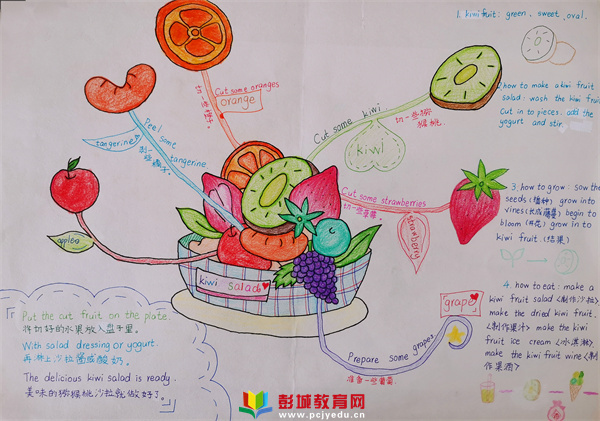 1. kiwi fruit: green, sweet, oval.
how to make a kiwi fruit
salad: wash the kiwi fruit
Cut in to pieces, add the
yogurt and stir.
3. how to grow: sow the
seeds (播种) grow into
vines (长成藤蔓) begin to
bloom (开花) grow in to
kiwi fruit. (结果)
4. how to eat: make a
kiwi fruit salad <制作沙拉>
make the dried kiwi fruit.
<制作果汁> make the kiwi
fruit ice cream <冰淇淋>
make the kiwi fruit wine <制
作果酒>
Cut some oranges
切一些橙子。
orange
Cut some kiwi
切一些猕
猴桃.
kiwi
Peel some
tangerine
剥一
些橘子.
tangerine
Cut some strawberries
切一些草莓.
strawberry
apples
kiwi salad
grape
Prepare some grapes
准备一些葡萄.
Put the cut fruit on the plate.
将切好的水果放入盘子里。
With salad dressing or yogurt.
再淋上沙拉酱或酸奶。
The delicious kiwi salad is ready.
美味的猕猴桃沙拉就做好了。
彭城教育网
www.pcjyedu.cn